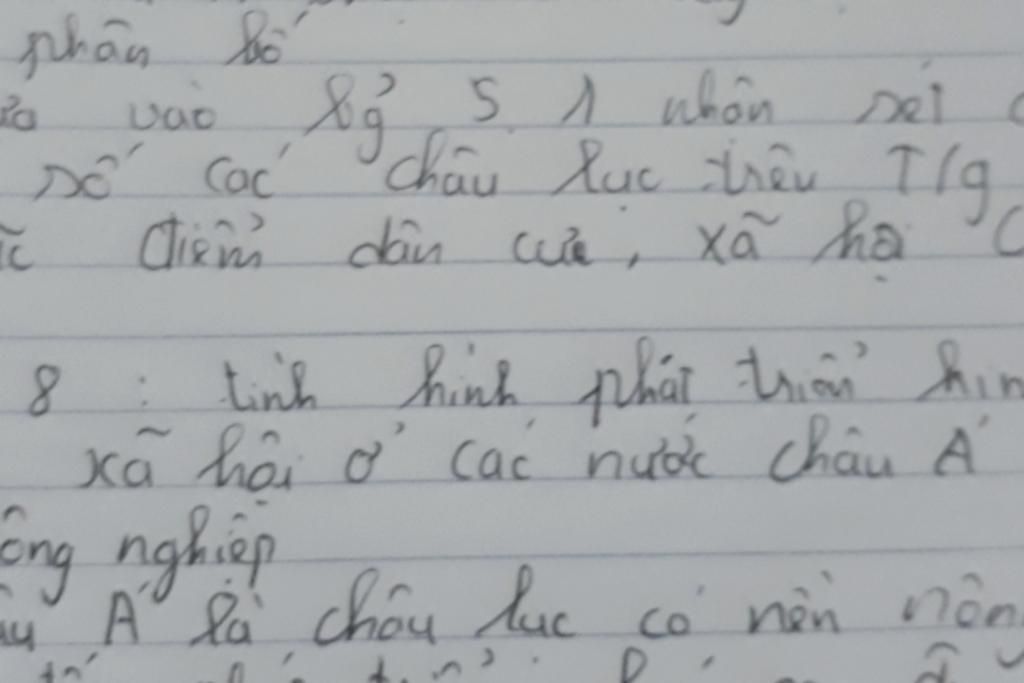 phân bố
vào bg 5.1 nhân xét
số các châu lục trên T/g
điểm dân cư, xã hội
8 : tình hình phát triển kin
xã hội ở các nước châu Á
ông nghiệp
Á là châu lục có nền nôn